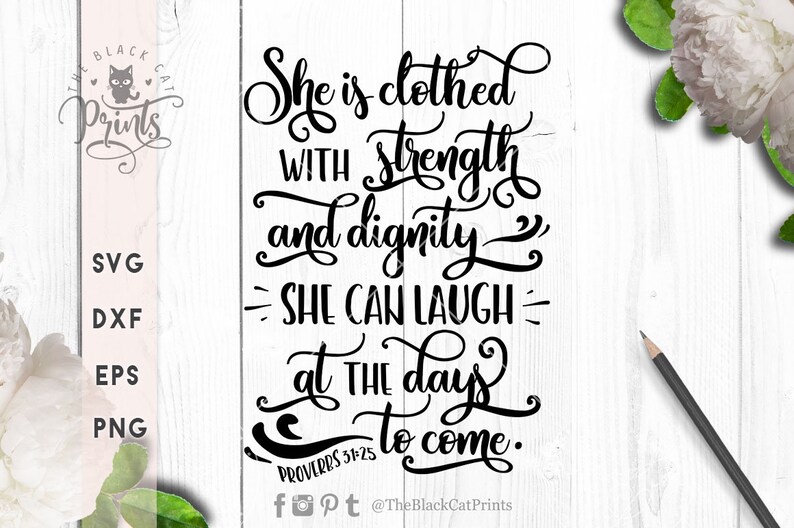 THE BLACK CAT
Prints
SVG
DXF
EPS
PNG
She is clothed
WITH strength
and dignity
SHE CAN LAUGH
at THE days
to come.
PROVERBS 31:25
@TheBlackCatPrints